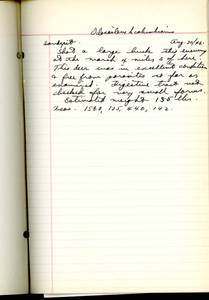 Odocoileus h. columbianus
Aug. 20/42.
Shot a large buck this evening
at the marsh 4 miles S of here.
This deer was in excellent condition
& free from parasites so far as
examined. Digestive tract not
checked for very small forms.
Estimated weight 185 lbs.
Meas. 1560, 125, 440, 142.